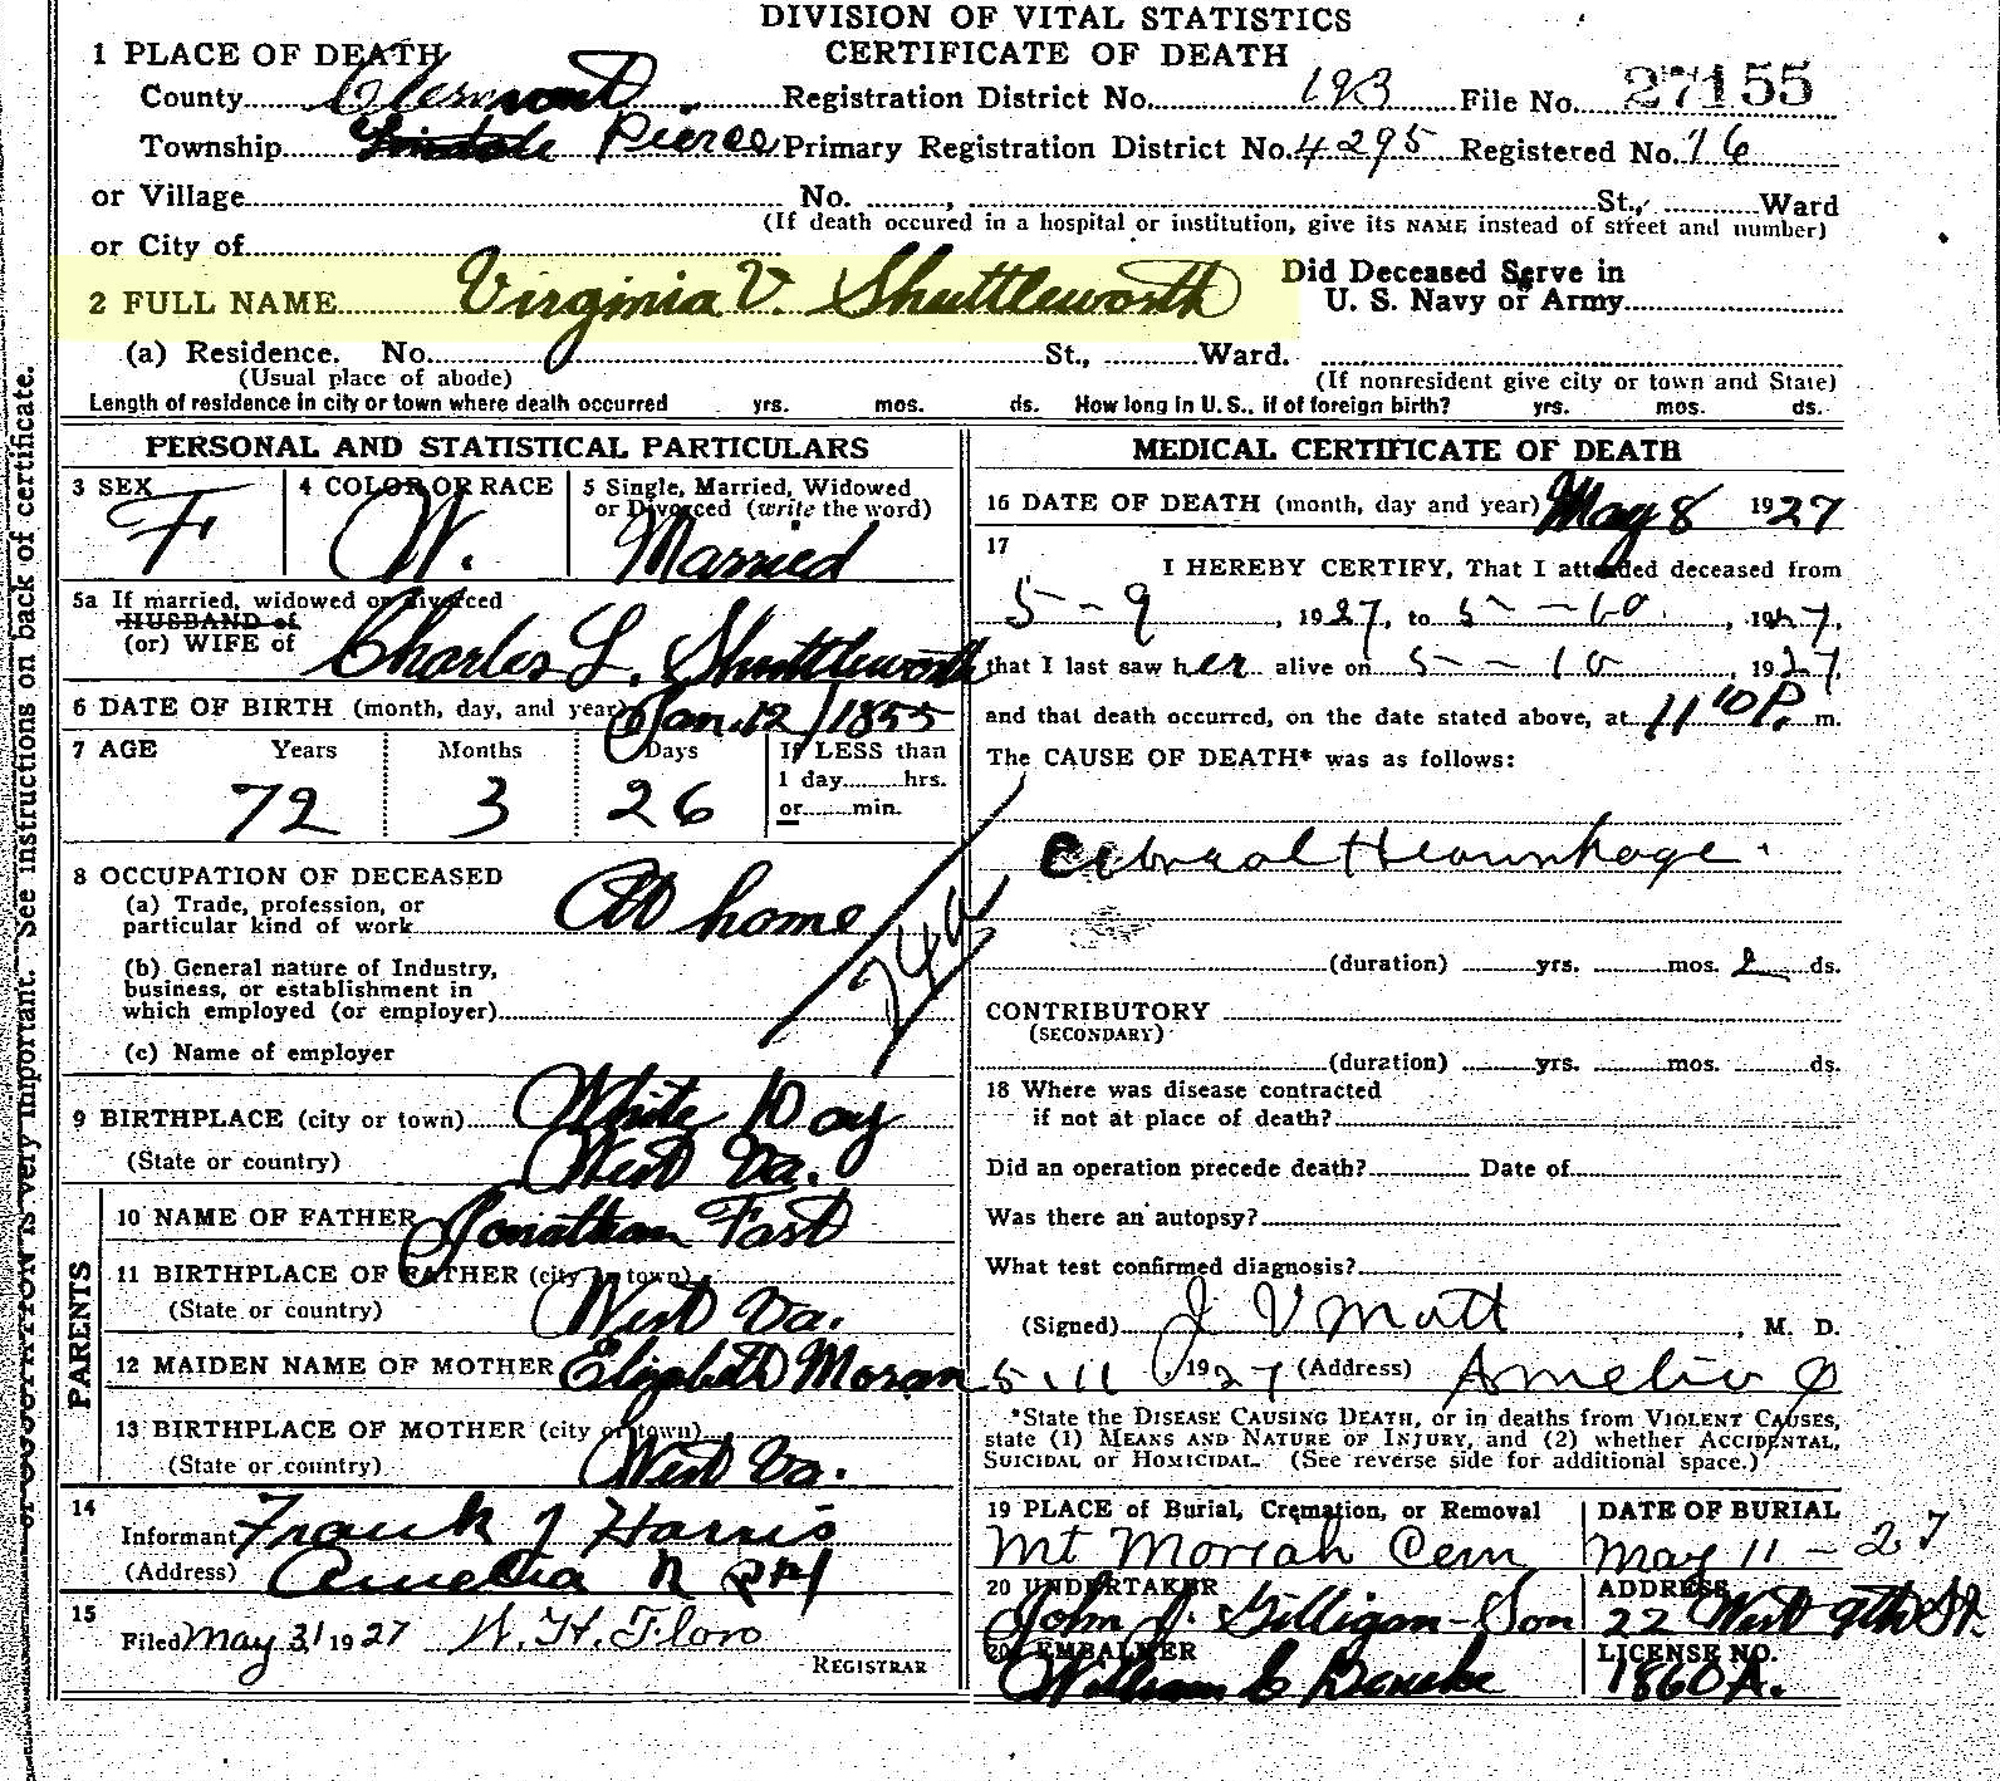 DIVISION OF VITAL STATISTICS
CERTIFICATE OF DEATH
1 PLACE OF DEATH
County Clermont Registration District No. 193 File No. 27155
Township Pierce Primary Registration District No. 4295 Registered No. 76
or Village No. , St., Ward
(If death occured in a hospital or institution, give its NAME instead of street and number)
or City of
2 FULL NAME Virginia V. Shuttleworth
Did Deceased Serve in
U. S. Navy or Army
(a) Residence. No. St., Ward.
(Usual place of abode) (If nonresident give city or town and State)
Length of residence in city or town where death occurred yrs. mos. ds. How long in U. S., if of foreign birth? yrs. mos. ds.
See instructions on back of certificate.
is very important.
PERSONAL AND STATISTICAL PARTICULARS
3 SEX
F
4 COLOR OR RACE
W.
5 Single, Married, Widowed
or Divorced (write the word)
Married
5a If married, widowed or divorced
HUSBAND of
(or) WIFE of Charles L. Shuttleworth
6 DATE OF BIRTH (month, day, and year) Jan. 12/1855
7 AGE Years Months Days If LESS than
1 day hrs.
or min.
72 3 26
8 OCCUPATION OF DECEASED
(a) Trade, profession, or
particular kind of work At home
(b) General nature of Industry,
business, or establishment in
which employed (or employer)
(c) Name of employer
9 BIRTHPLACE (city or town) White Day
(State or country) West Va.
PARENTS
10 NAME OF FATHER Jonathan Fast
11 BIRTHPLACE OF FATHER (city or town)
(State or country) West Va.
12 MAIDEN NAME OF MOTHER Elizabeth Moran
13 BIRTHPLACE OF MOTHER (city or town)
(State or country) West Va.
14
Informant Frank J Harris
(Address) Amelia
15
Filed May 31 1927 W. H. Floro
REGISTRAR
MEDICAL CERTIFICATE OF DEATH
16 DATE OF DEATH (month, day and year) May 8 1927
17
I HEREBY CERTIFY, That I attended deceased from
5-9, 1927, to 5-10, 1927,
that I last saw her alive on 5-10, 1927,
and that death occurred, on the date stated above, at 11 10 P. m.
The CAUSE OF DEATH* was as follows:
Cerebral Hemorrhage.
(duration) yrs. mos. 2 ds.
CONTRIBUTORY
(SECONDARY)
(duration) yrs. mos. ds.
18 Where was disease contracted
if not at place of death?
Did an operation precede death? Date of
Was there an autopsy?
What test confirmed diagnosis?
(Signed) J V Mott, M. D.
5.11, 1927 (Address) Amelia O
*State the DISEASE CAUSING DEATH, or in deaths from VIOLENT CAUSES,
state (1) MEANS AND NATURE OF INJURY, and (2) whether ACCIDENTAL,
SUICIDAL or HOMICIDAL. (See reverse side for additional space.)
19 PLACE of Burial, Cremation, or Removal
Mt Moriah Cem
DATE OF BURIAL
May 11-27
20 UNDERTAKER
John J. Gilligan-Son
ADDRESS
22 West 9th St.
EMBALMER
William C
LICENSE NO.
1860A.